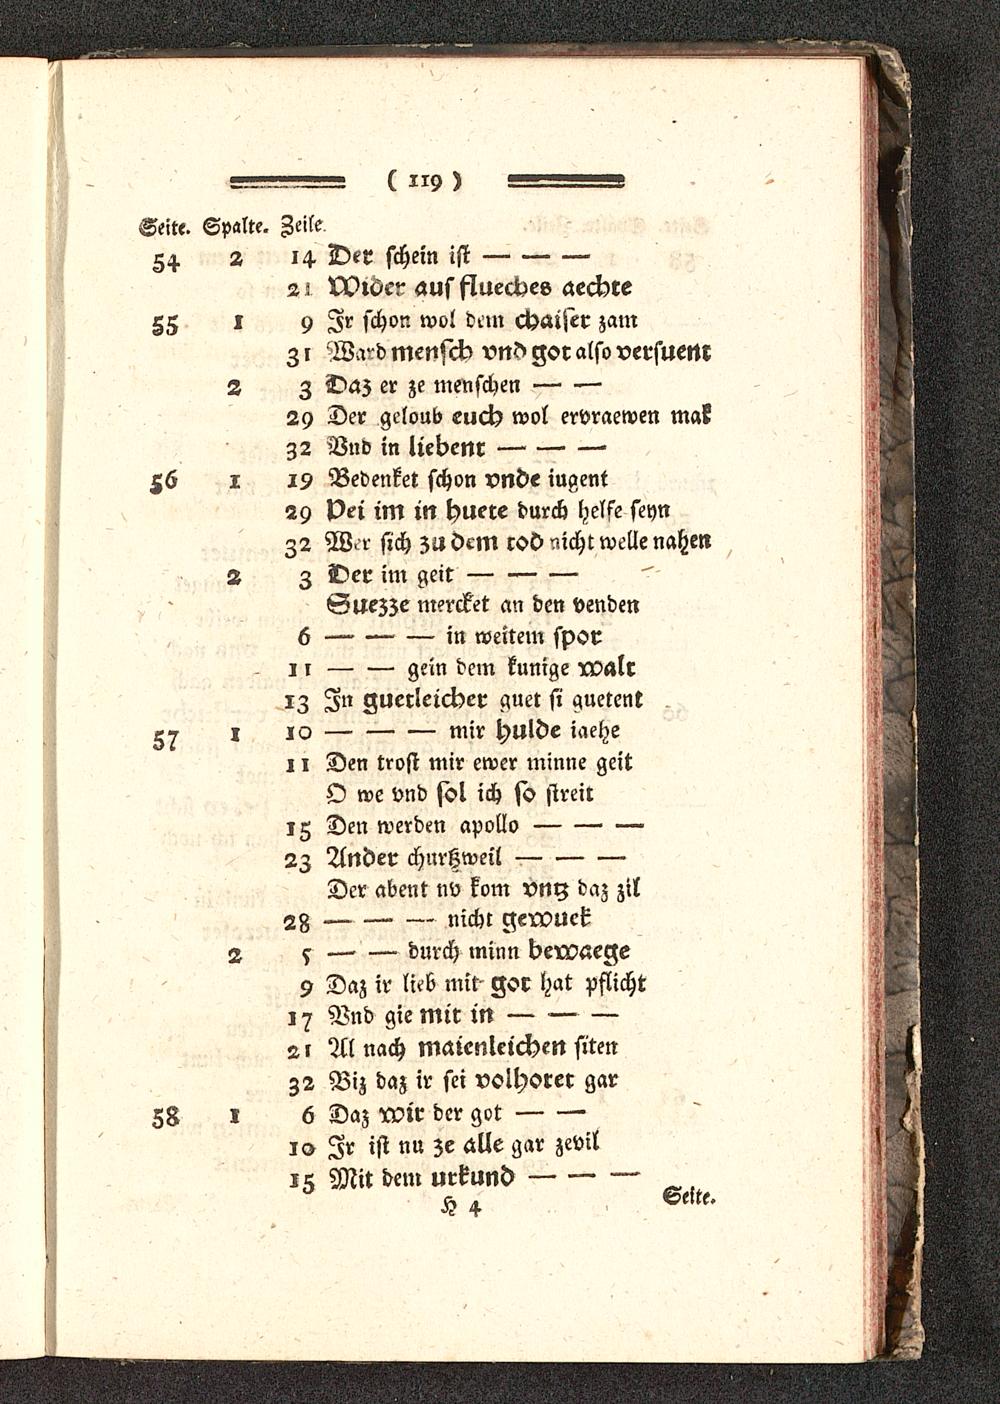 ( 119 )
Seite. Spalte. Zeile.
54 2 14 Der schein ist — — —
21 Wider aus flueches aechte
55 1 9 Jr schon wol dem chaiser zam
31 Ward mensch vnd got also versuent
2 3 Daz er ze menschen — —
29 Der geloub euch wol ervraewen mak
32 Vnd in liebent — — —
56 1 19 Bedenket schon vnde iugent
29 Pei im in huete durch helfe seyn
32 Wer sich zu dem tod nicht welle nahen
2 3 Der im geit — — —
Suezze mercket an den venden
6 — — — in weitem spor
11 — — gein dem kunige walt
13 Jn guetleicher guet si guetent
57 1 10 — — — mir hulde iaehe
11 Den trost mir ewer minne geit
O we vnd sol ich so streit
15 Den werden apollo — — —
23 Ander churtzweil — — —
Der abent nv kom vntz daz zil
28 — — — nicht gewuek
2 5 — — durch minn bewaege
9 Daz ir lieb mit got hat pflicht
17 Vnd gie mit in — — —
21 Al nach maienleichen siten
32 Biz daz ir sei volhoret gar
58 1 6 Daz wir der got — —
10 Jr ist nu ze alle gar zevil
15 Mit dem urkund — — —
H 4 Seite.